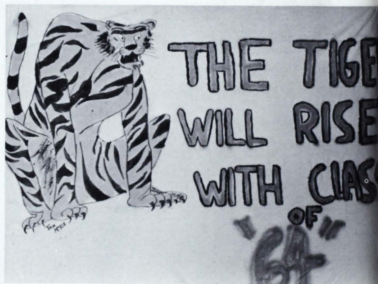 THE TIGE
WILL RISE
WITH CLAS
OF
"64"